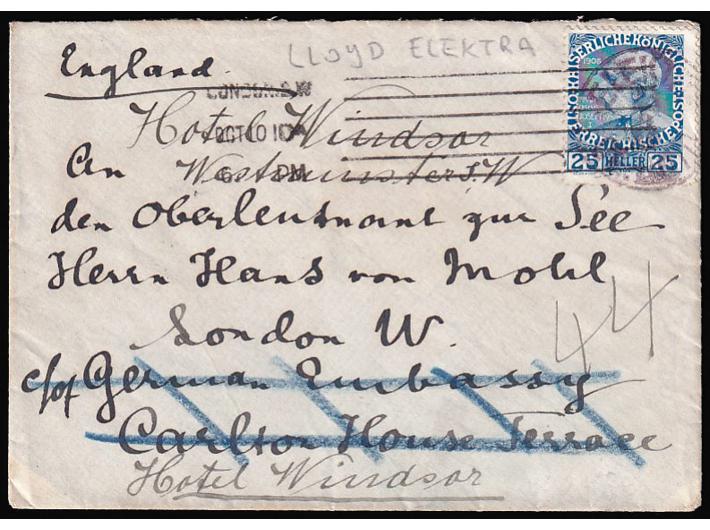 LLOYD ELEKTRA
England
LONDON. S.W
OCT 10 10
6 PM
Hotel Windsor
Westminster S.W
1908
KAISERLICHEKÖNIGLICHE
ÖSTERREICHISCHE POST
25 HELLER 25
An
den Oberleutnant zur See
Herrn Hans von Mohl
London W.
c/of German Embassy
Carlton House Terrace
44
Hotel Windsor